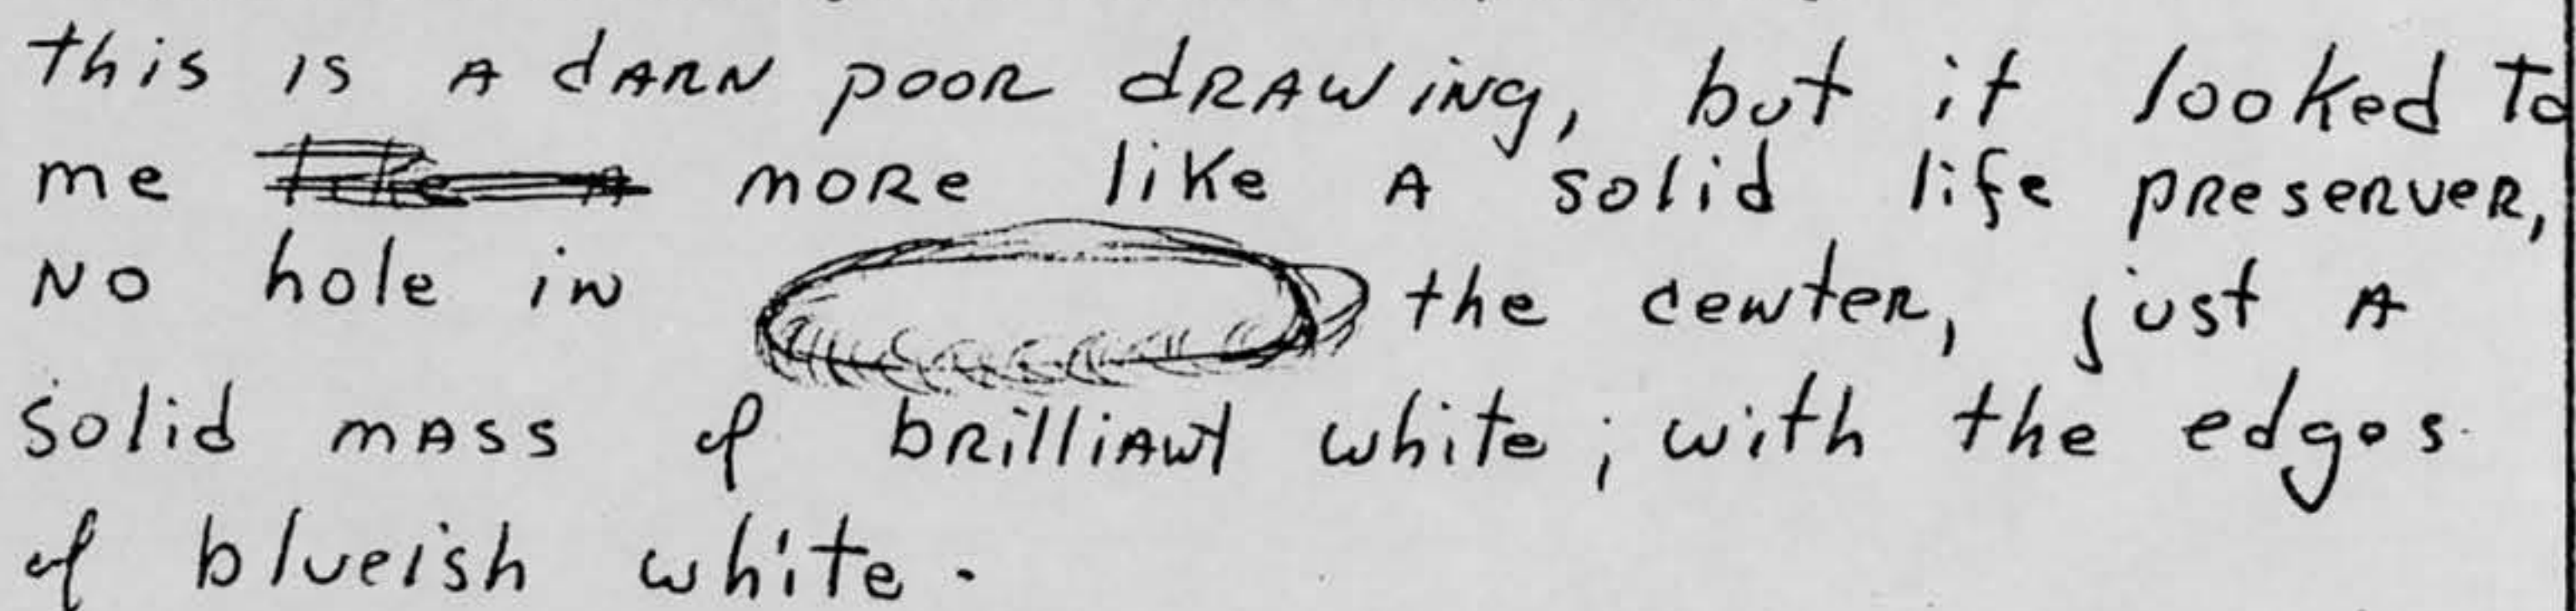 this is A dARN pooR dRAWiNg, but it looked to
me like A moRe like A solid life pReseRveR,
No hole iN the ceNteR, just A
solid mASS of bRilliANt white; with the edges
of blueish white.